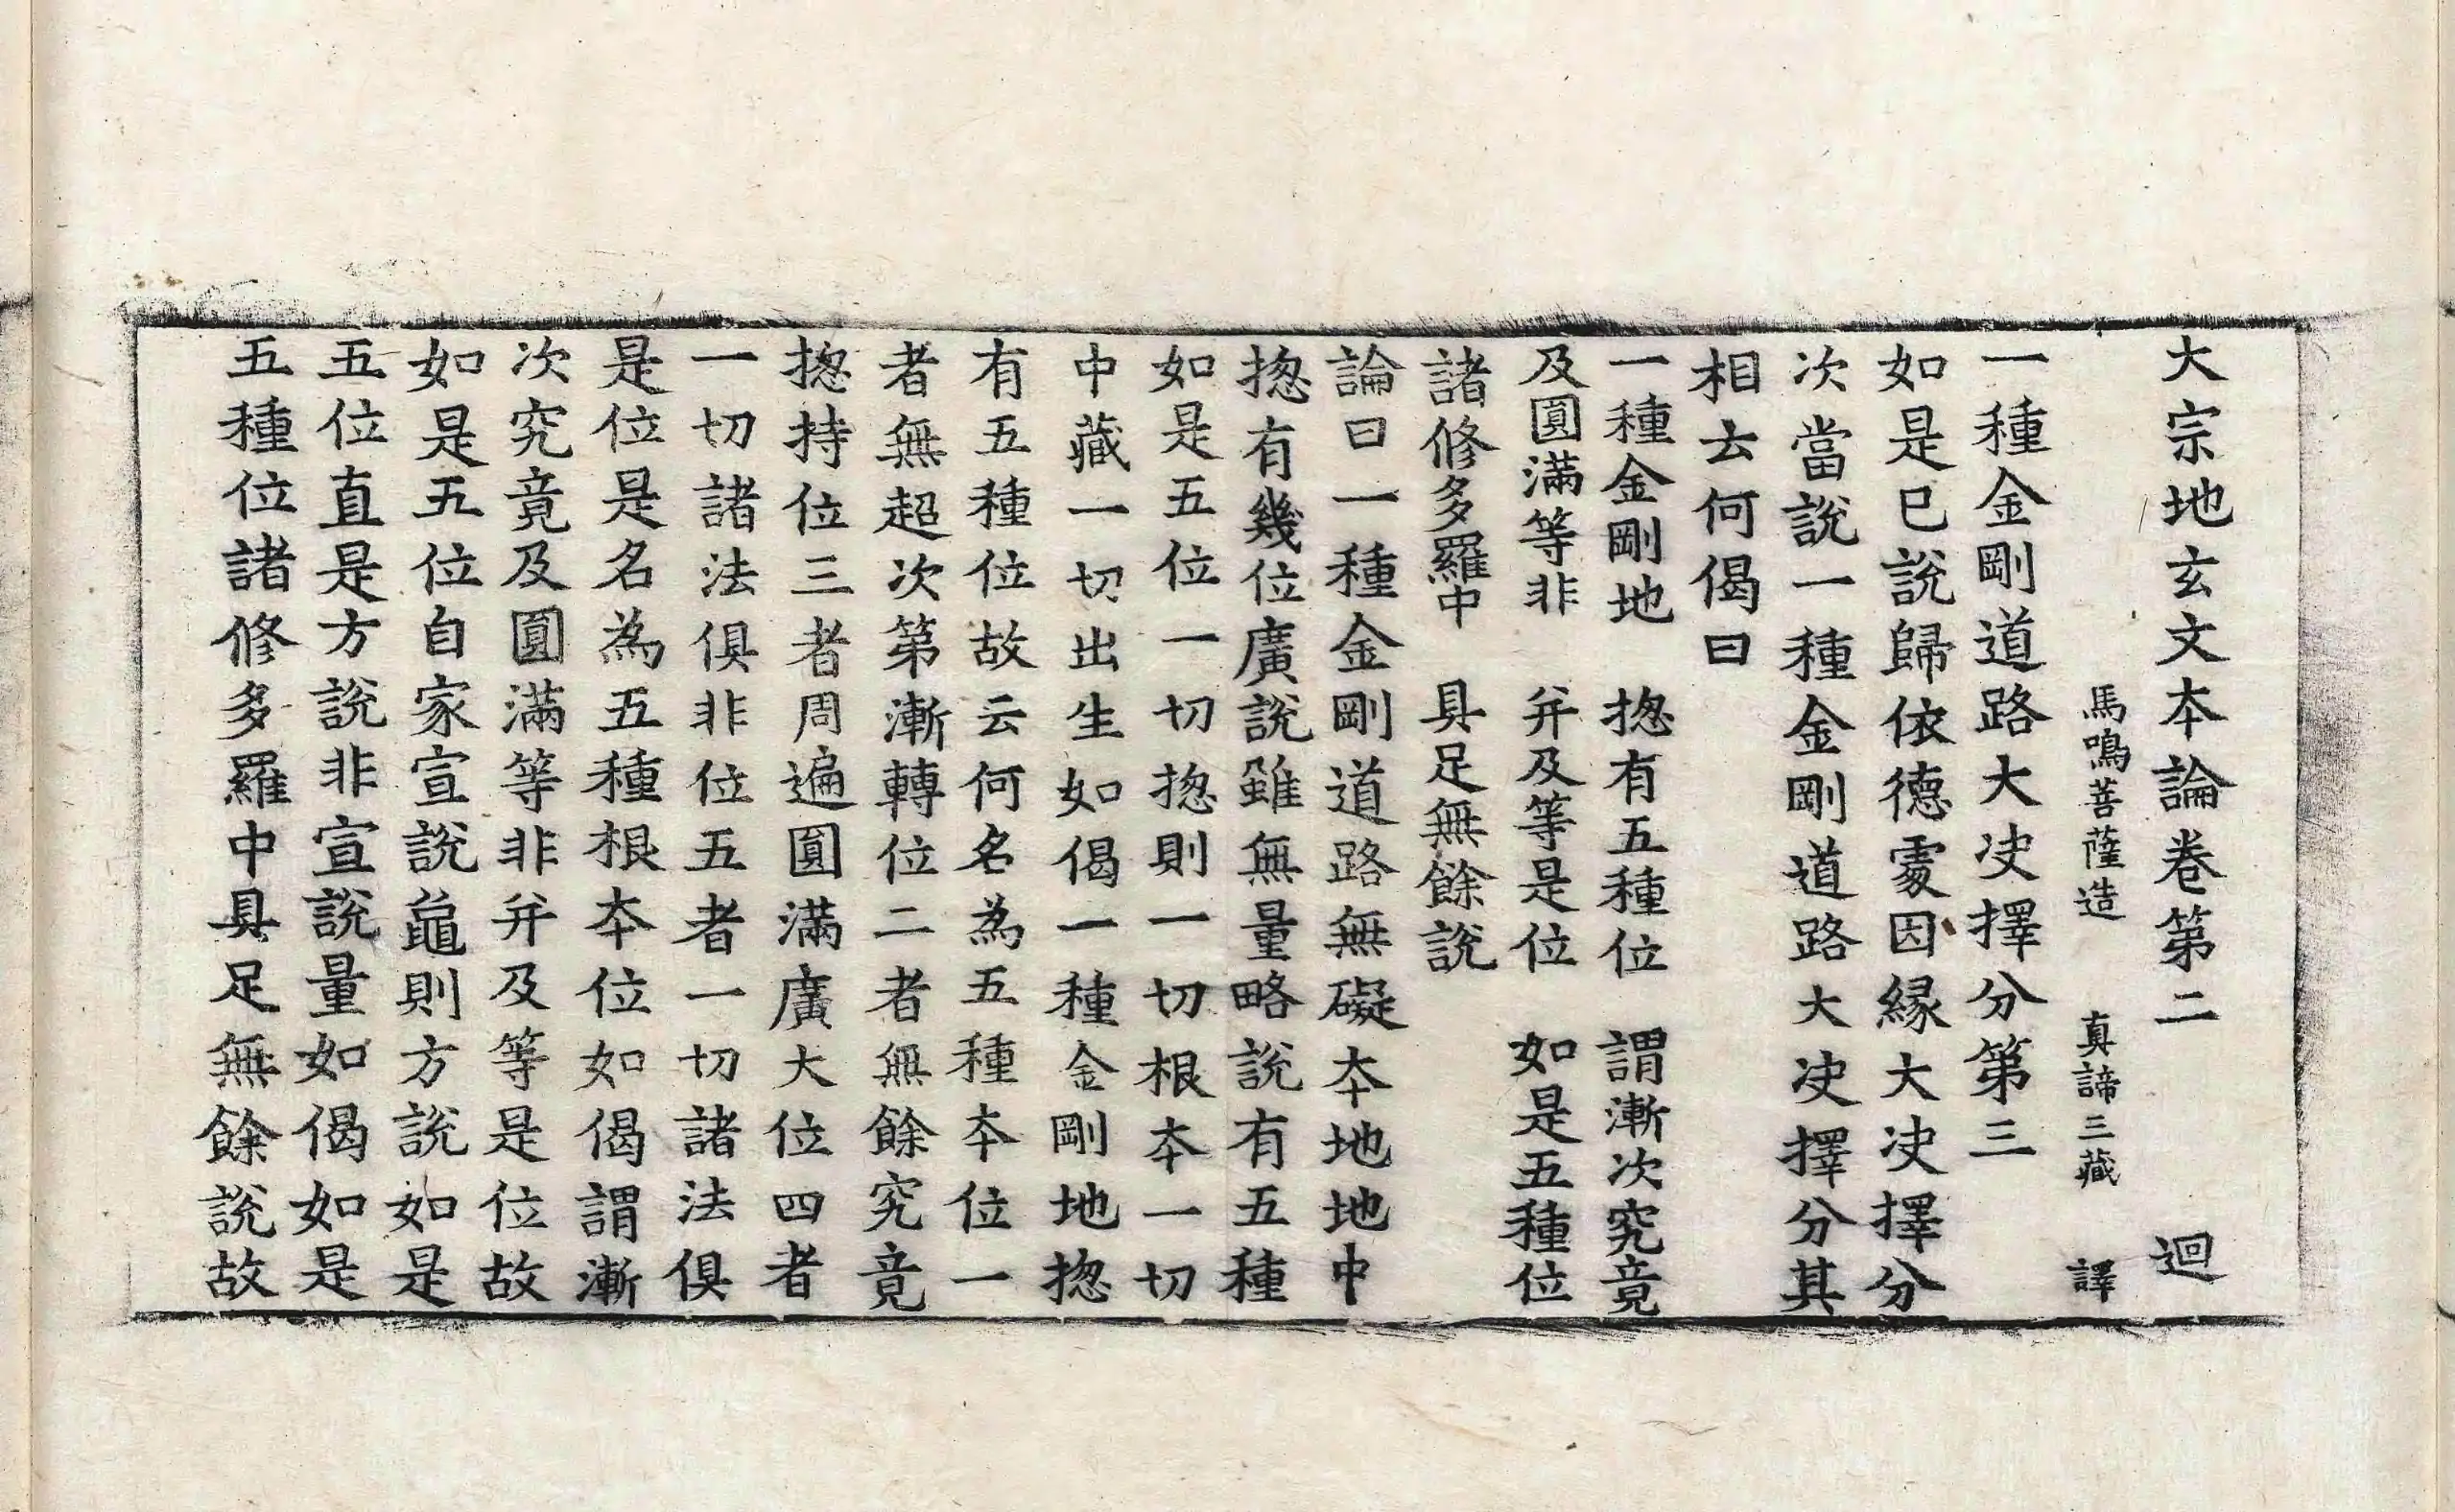 大宗地玄文夲論卷第二　迴
馬鳴菩薩造　真諦三藏　譯
一種金剛道路大决擇分第三
如是已說歸依德處因縁大决擇分
次當說一種金剛道路大决擇分其
相去何偈曰
一種金剛地　揔有五種位　謂漸次究竟
及圓滿等非　并及等是位　如是五種位
諸修多羅中　具足無餘說
論曰一種金剛道路無礙夲地地中
揔有幾位廣說雖無量略說有五種
如是五位一切揔則一切根夲一切
中藏一切出生如偈一種金剛地揔
有五種位故云何名為五種夲位一
者無超次第漸轉位二者無餘究竟
揔持位三者周遍圓滿廣大位四者
一切諸法俱非位五者一切諸法俱
是位是名為五種根夲位如偈謂漸
次究竟及圓滿等非并及等是位故
如是五位自家宣說龜則方說如是
五位直是方說非宣說量如偈如是
五種位諸修多羅中具足無餘說故